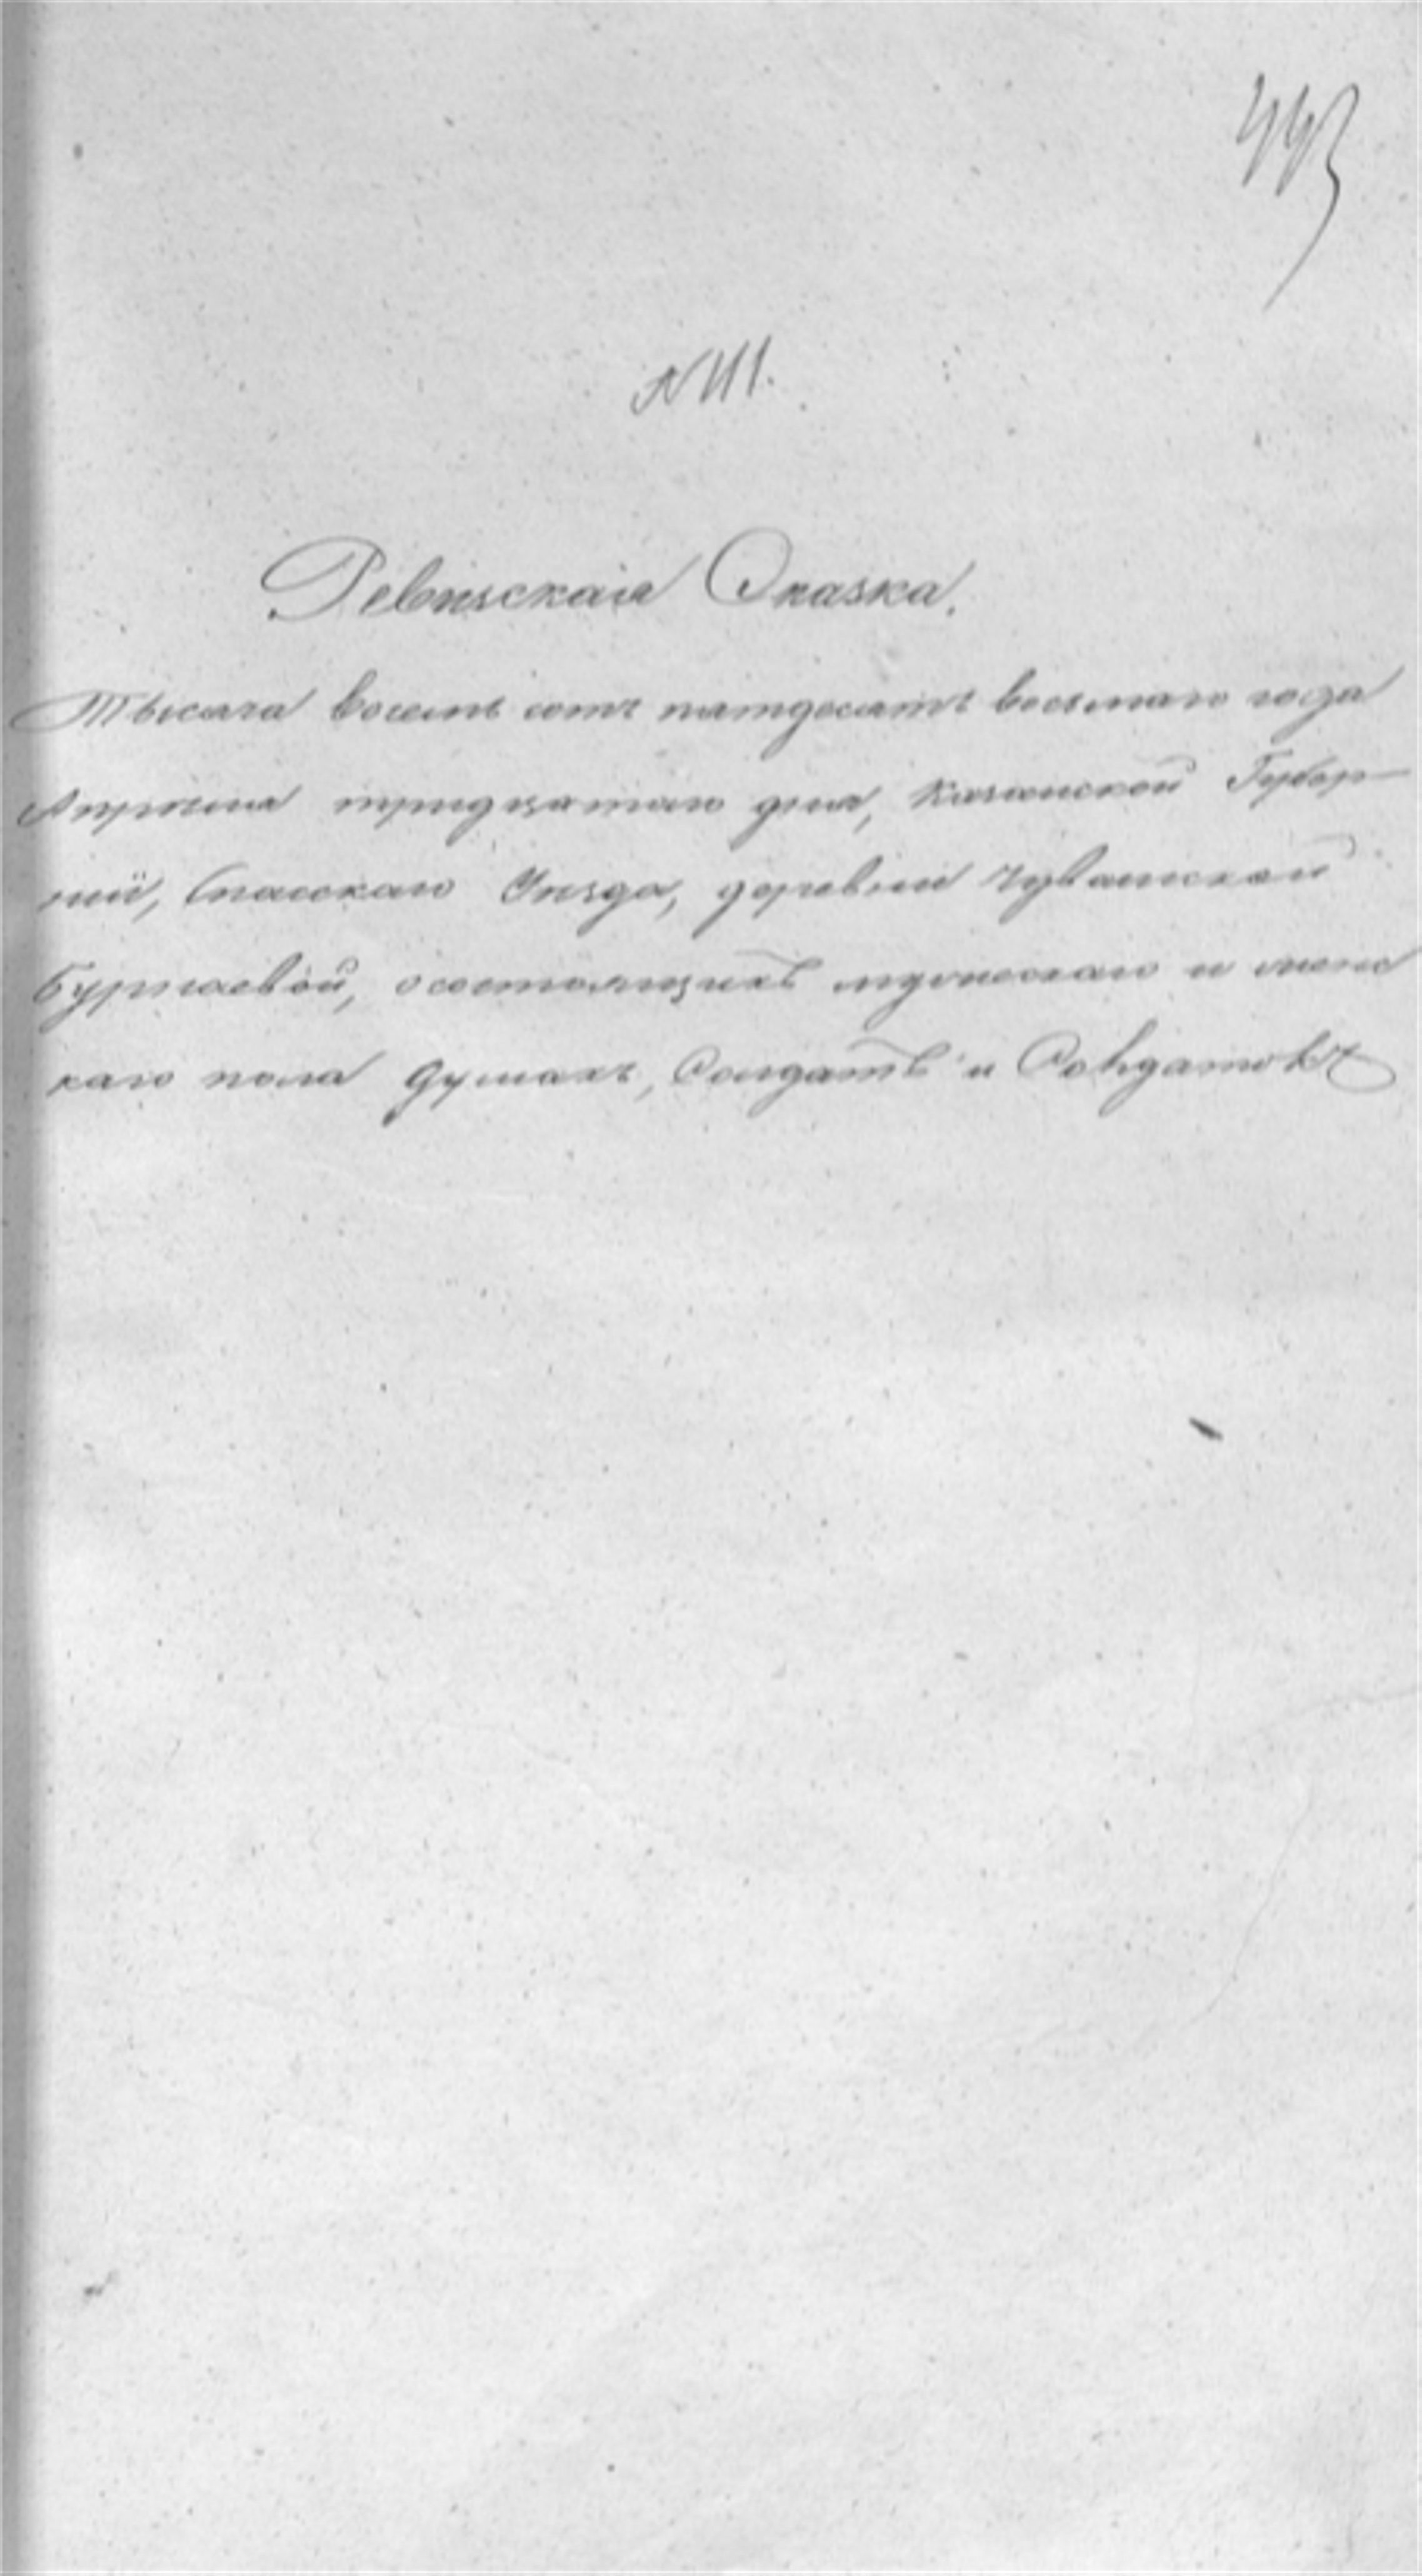 443
№ 111.
Ревизская Сказка.
Тысяча восемь сотъ пятдесятъ восьмаго года
Апреля тридцатаго дня, Казанской Губер-
нiи, Спасскаго Уезда, деревни Чувашской
Бурнаевой, о состоящихъ мужескаго и женс
каго пола душахъ, Солдатъ и Солдатокъ